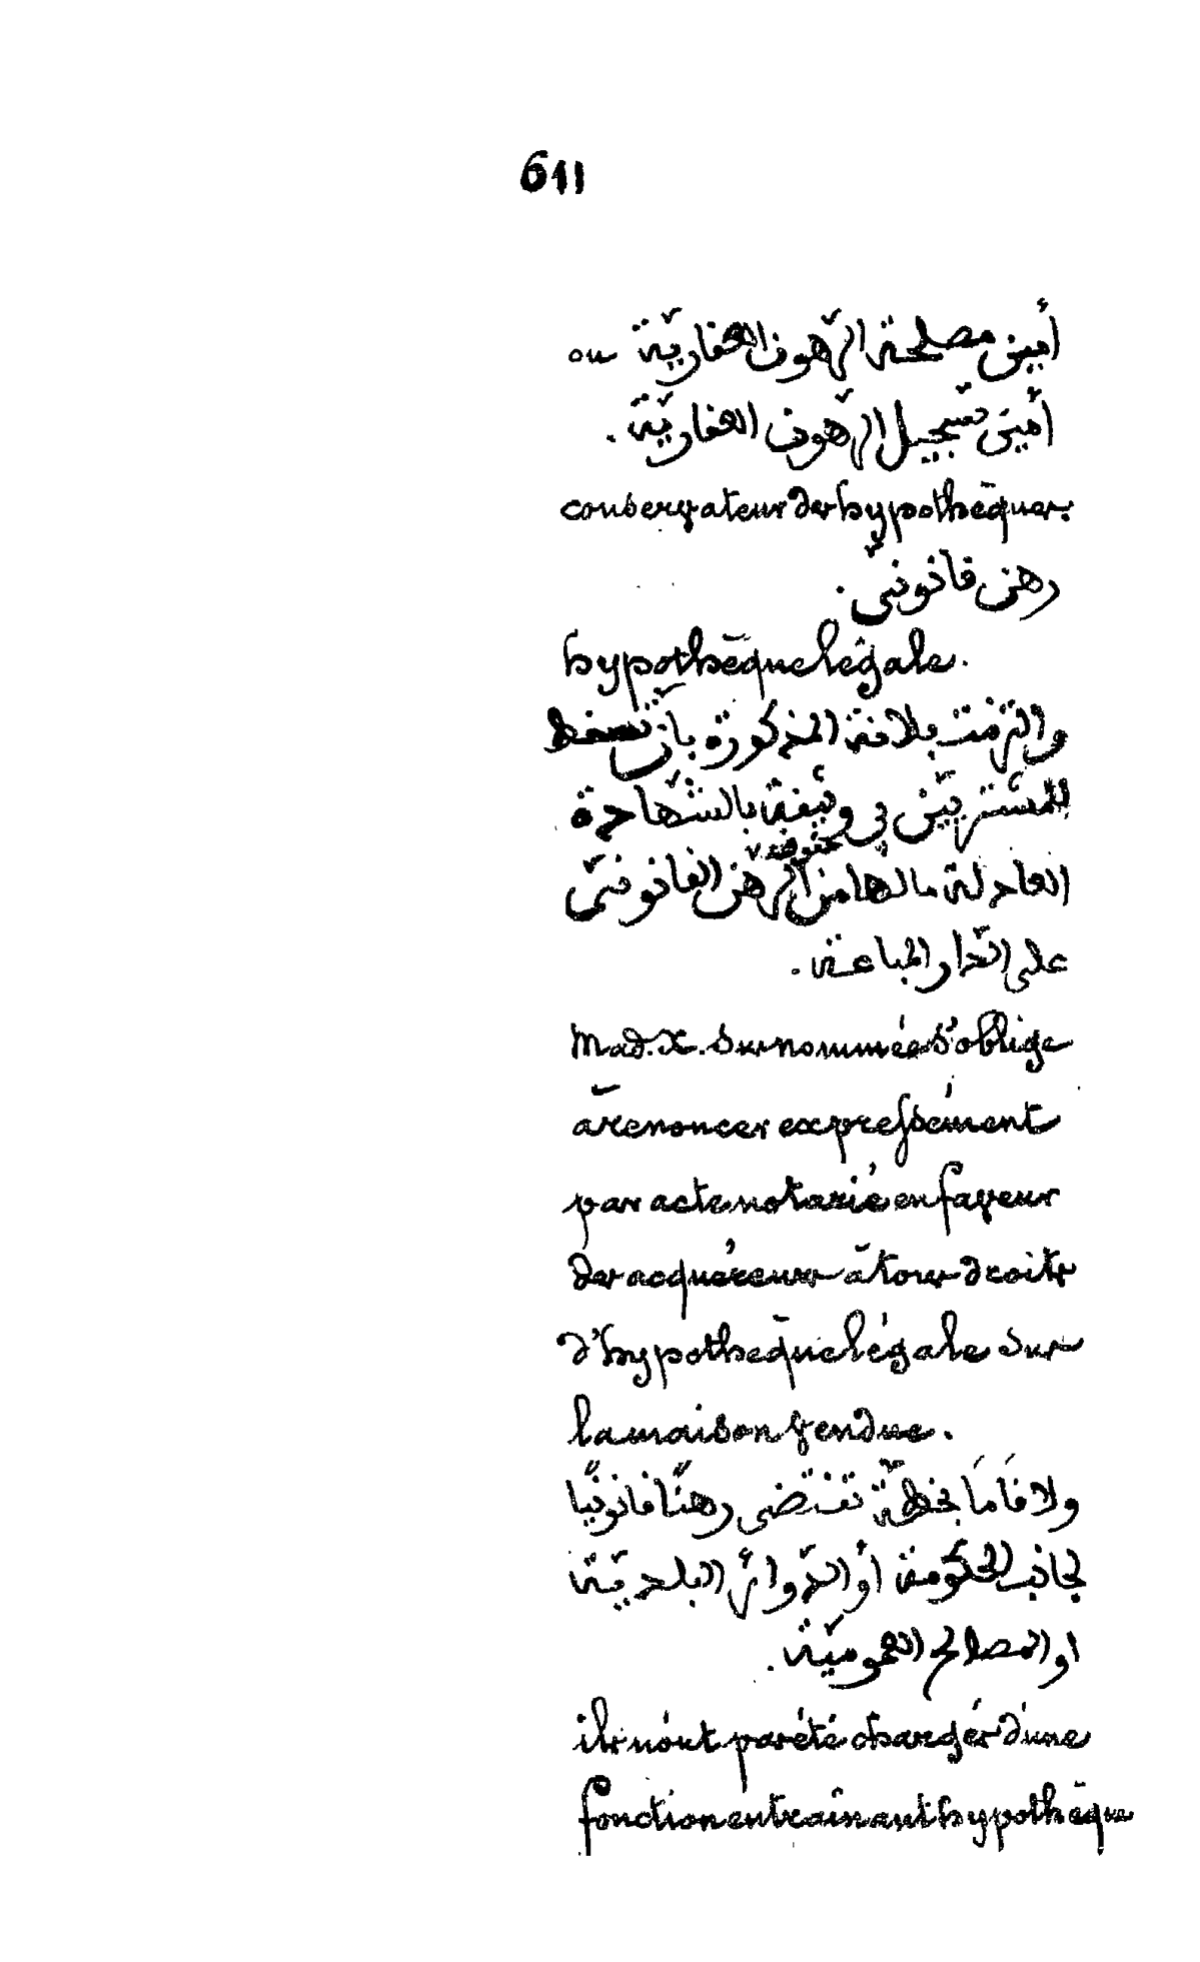 611
أمين مصلحة الرّهون العقاريّة ou
أمين تسجيل الرّهون العقاريّة .
conservateur des hypothèques.
رهن قانونيّ .
hypothèque légale.
والتزمت بلانة المذكورة بأن تسقط
للمشتريَيْن في وثيقة بالشّهادة
حقوق
العادلة مالها من الرّهن القانونيّ
على الدّار المباعة .
Mad. X. surnommée s'oblige
à renoncer expressément
par acte notarié en faveur
des acquéreurs à tous droits
d'hypothèque légale sur
la maison vendue.
ولا قاما بخطّة تقتضى رهنًا قانونيًّا
لجانب الحكومة أو الدّوائر البلديّة
او المصالح العموميّة .
ils n'ont pas été chargés d'une
fonction entraînant hypothèque